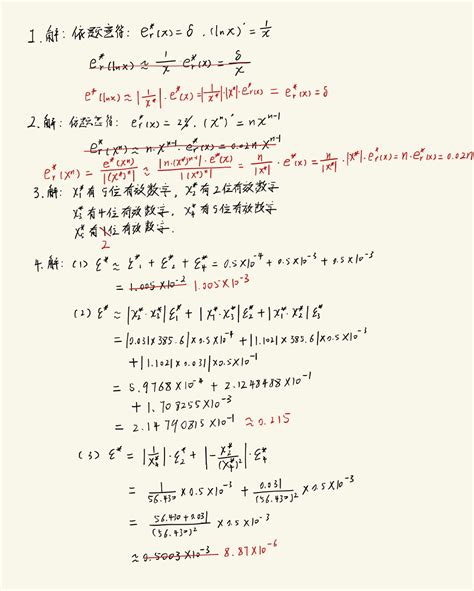 1. 解: 依题意得: e*r(x)=δ, (lnx)'=1/x
e*r(lnx)≈1/x e*r(x)=δ/x
e*(lnx)≈|1/x*|·e*(x)=|1/x*|·|x*|·e*r(x)=e*r(x)=δ
2. 解: 依题意得: e*r(x)=2%, (x^n)'=nx^(n-1)
e*r(x^n)≈n·x^(n-1)·e*r(x)=0.02n·x^(n-1)
e*r(x^n)=e*(x^n)/|(x*)^n|≈|n·(x*)^(n-1)|·e*(x)/|(x*)^n|=n/|x*|·e*(x)=n/|x*|·|x*|·e*r(x)=n·e*r(x)=0.02n
3. 解: x1*有5位有效数字, x2*有2位有效数字
x3*有4位有效数字, x4*有5位有效数字
x5*有1位有效数字.
2
4. 解: (1) ε*≈ε1*+ε2*+ε4*=0.5×10^-4+0.5×10^-3+0.5×10^-3
=1.005×10^-2 1.005×10^-3
(2) ε*≈|x2*·x3*|ε1*+|x1*·x3*|ε2*+|x1*·x2*|ε3*
=|0.031×385.6|×0.5×10^-4+|1.1021×385.6|×0.5×10^-3
+|1.1021×0.031|×0.5×10^-1
=5.9768×10^-4+2.1248488×10^-1
+1.708255×10^-3
=2.14790815×10^-1 ≈0.215
(3) ε*=|1/x4*|·ε2*+|-x2*/(x4*)^2|·ε4*
=1/56.430×0.5×10^-3+0.031/(56.430)^2×0.5×10^-3
=(56.430+0.031)/(56.430)^2×0.5×10^-3
≈0.5003×10^-3 8.87×10^-6